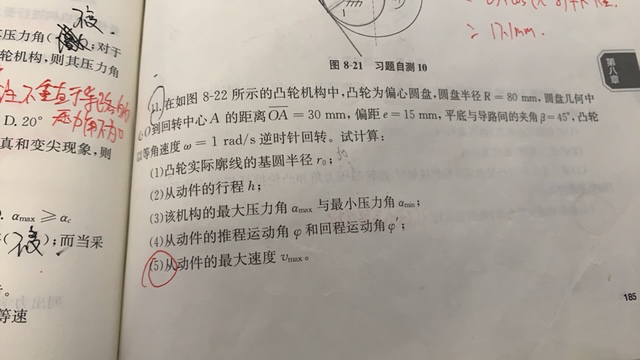 夜
其压力角(
);对于
轮机构,则其压力角
注不垂直于导路的
D. 20°
压力角不为0
真和变尖现象,则
αmax ≥ αc
);而当采
等速
1
≥ 17.1mm.
图 8-21 习题自测 10
第八章
11. 在如图 8-22 所示的凸轮机构中,凸轮为偏心圆盘,圆盘半径 R = 80 mm,圆盘几何中
心 O 到回转中心 A 的距离 OA = 30 mm,偏距 e = 15 mm,平底与导路间的夹角 β = 45°,凸轮
以等角速度 ω = 1 rad/s 逆时针回转。试计算:
(1)凸轮实际廓线的基圆半径 r₀;50
(2)从动件的行程 h;
(3)该机构的最大压力角 αmax 与最小压力角 αmin;
(4)从动件的推程运动角 φ 和回程运动角 φ′;
(5)从动件的最大速度 vmax。
185